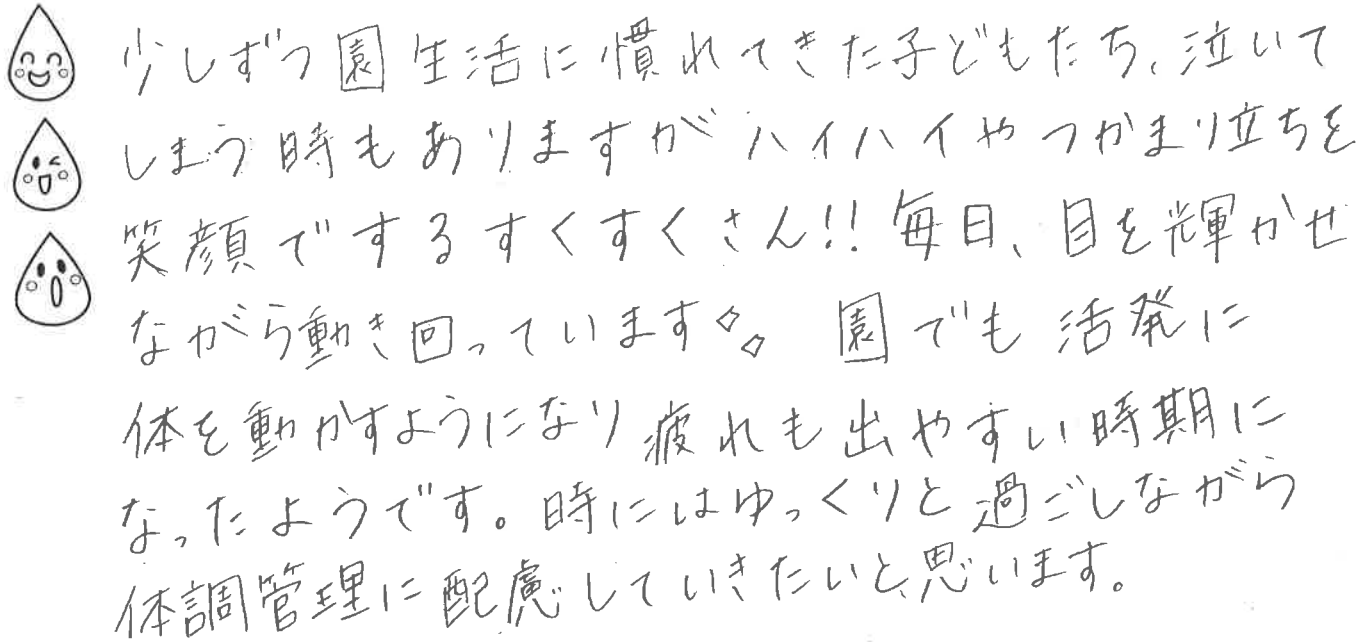 少しずつ園生活に慣れてきた子どもたち、泣いて
しまう時もありますがハイハイやつかまり立ちを
笑顔でするすくすくさん!! 毎日、目を輝かせ
ながら動き回っています◇◇ 園でも活発に
体を動かすようになり疲れも出やすい時期に
なったようです。時にはゆっくりと過ごしながら
体調管理に配慮していきたいと思います。